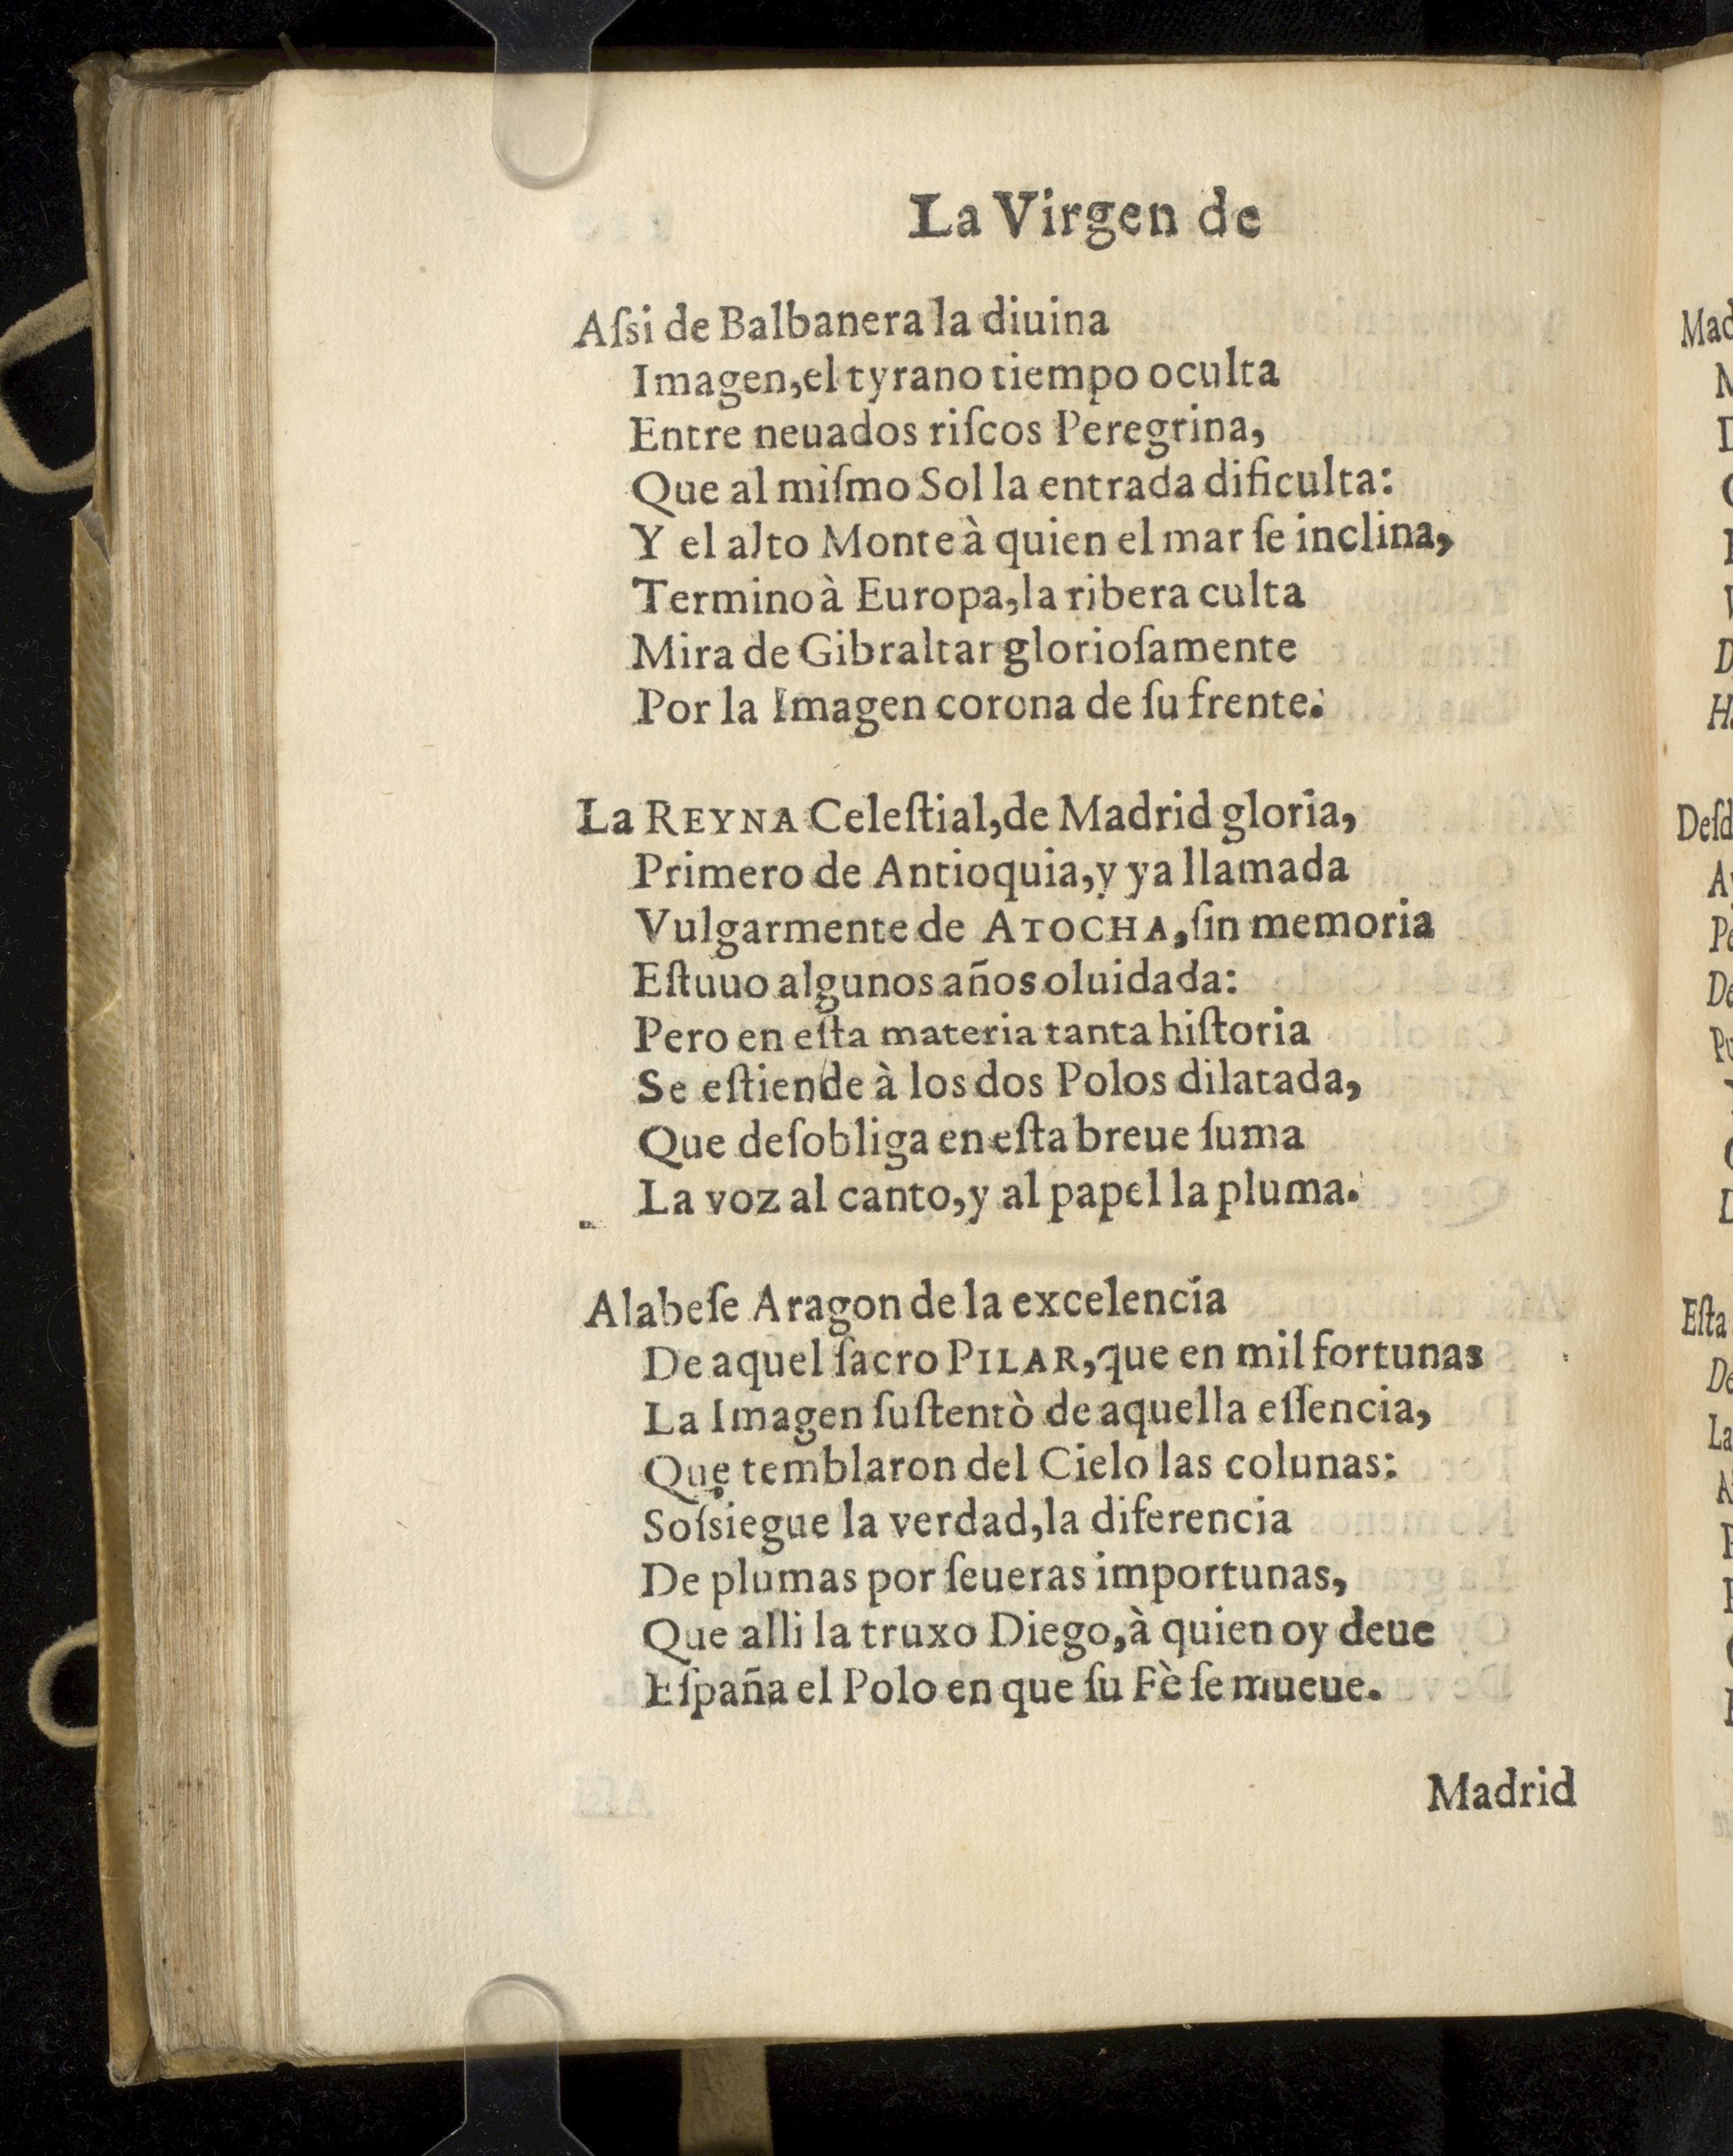 La Virgen de
Aſsi de Balbanera la diuina
Imagen, el tyrano tiempo oculta
Entre neuados riſcos Peregrina,
Que al miſmo Sol la entrada dificulta:
Y el alto Monte à quien el mar ſe inclina,
Termino à Europa, la ribera culta
Mira de Gibraltar glorioſamente
Por la Imagen corona de ſu frente.
La REYNA Celeſtial, de Madrid gloria,
Primero de Antioquia, y ya llamada
Vulgarmente de ATOCHA, ſin memoria
Eſtuuo algunos años oluidada:
Pero en eſta materia tanta hiſtoria
Se eſtiende à los dos Polos dilatada,
Que deſobliga en eſta breue ſuma
La voz al canto, y al papel la pluma.
Alabeſe Aragon de la excelencia
De aquel ſacro PILAR, que en mil fortunas
La Imagen ſuſtentò de aquella eſſencia,
Que temblaron del Cielo las colunas:
Soſsiegue la verdad, la diferencia
De plumas por ſeueras importunas,
Que alli la truxo Diego, à quien oy deue
Eſpaña el Polo en que ſu Fè ſe mueue.
Madrid